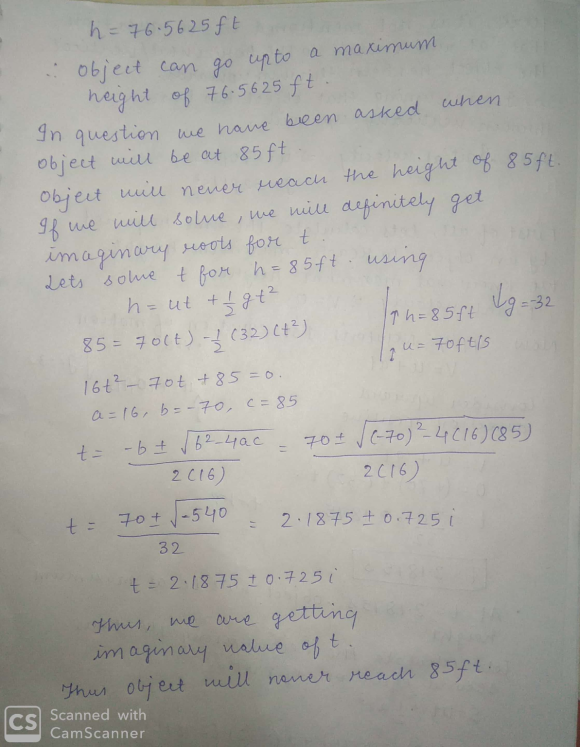 h = 76.5625ft
∴ Object can go upto a maximum
height of 76.5625 ft.
In question we have been asked when
object will be at 85ft
Object will never reach the height of 85ft.
If we will solve, we will definitely get
imaginary roots for t.
Lets solve t for h = 85ft. using
h = ut + 1/2 gt²
↑h = 85ft ↓g = -32
85 = 70(t) - 1/2 (32)(t²)
↑u = 70ft/s
16t² - 70t + 85 = 0.
a = 16, b = -70, c = 85
t = (-b ± √(b² - 4ac)) / 2(16) = (70 ± √((-70)² - 4(16)(85))) / 2(16)
t = (70 ± √-540) / 32 = 2.1875 ± 0.725i
t = 2.1875 ± 0.725i
Thus, we are getting
imaginary value of t.
Thus object will never reach 85ft.
CS Scanned with
CamScanner